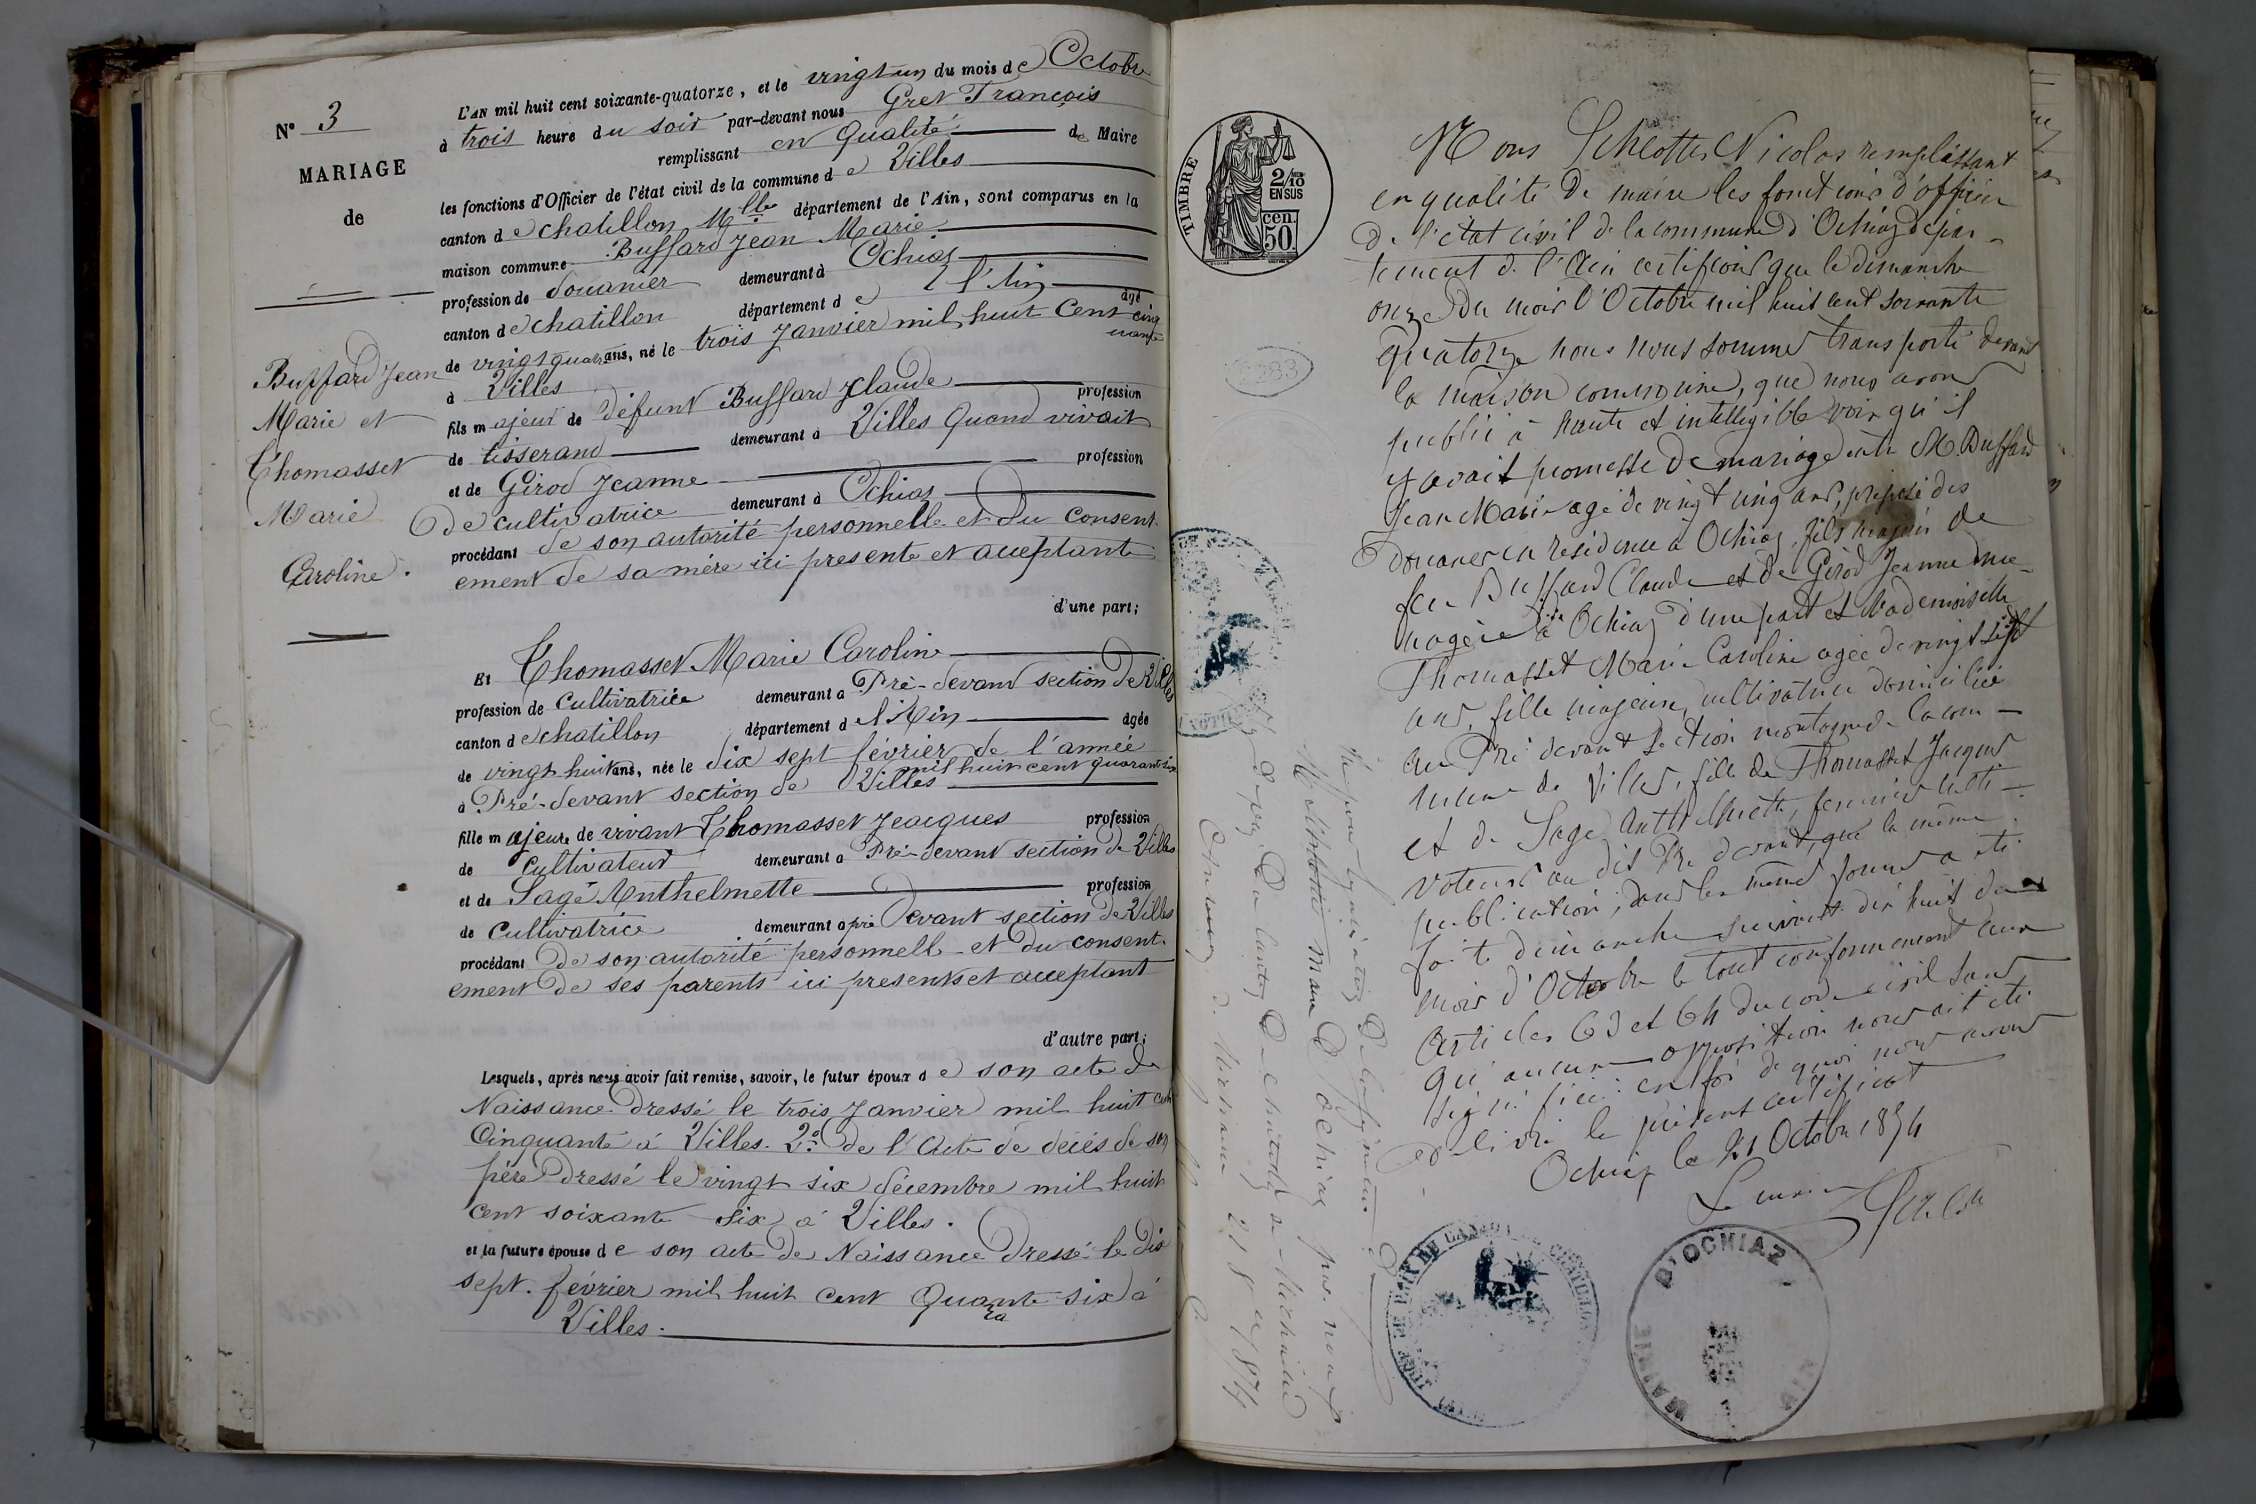 N° 3
MARIAGE
de
Buffard Jean
Marie et
Thomasset
Marie
Caroline.
L'AN mil huit cent soixante-quatorze, et le vingt un du mois de Octobre
à trois heure du soir par-devant nous Gret François
remplissant en Qualité de Maire
les fonctions d'Officier de l'état civil de la commune de Villes
canton de chatillon Mlle département de l'Ain, sont comparus en la
maison commune Buffard Jean Marie
profession de douanier demeurant à Ochiaz
canton de chatillon département de l'Ain âgé
de vingt quatre ans, né le trois Janvier mil huit Cent cinq
uante
à Villes
fils majeur de défunt Buffard Claude profession
de tisserand demeurant à Villes Quand vivait
et de Girod Jeanne profession
de cultivatrice demeurant à Ochiaz
procédant de son autorité personnelle et du consent
ement de sa mère ici presente et acceptante
d'une part;
Et Thomasset Marie Caroline
profession de cultivatrice demeurant à Pré-devant section de Villes
canton de chatillon département de l'Ain âgée
de vingt huit ans, née le dix sept février de l'année
mil huit cent quarante six
à Pré-devant section de Villes
fille majeure de vivant Thomasset Jacques profession
de cultivateur demeurant à Pré-devant section de Villes
et de Sage Anthelmette profession
de cultivatrice demeurant à pré devant section de Villes
procédant de son autorité personnelle et du consent
ement de ses parents ici presents et acceptant
d'autre part;
Lesquels, après nous avoir fait remise, savoir, le futur époux de son acte de
Naissance dressé le trois Janvier mil huit cent
Cinquante à Villes. 2° de l'Acte de décès de son
père dressé le vingt six décembre mil huit
cent soixante six à Villes.
et la future épouse de son acte de Naissance dressé le dix
sept février mil huit cent Quarante six à
Villes.
TIMBRE
2/10
EN SUS
cen.
50.
Nous Schlotter Nicolas remplissant
en qualité de maire les fonctions d'officier
de l'état civil de la commune d'Ochiaz dépar-
tement de l'Ain certifions que le dimanche
onze du mois d'Octobre mil huit cent soixante
quatorze nous nous sommes transporté devant
la maison commune, que nous avons
publié à haute et intelligible voix qu'il
y avait promesse de mariage entre M. Buffard
Jean Marie agé de vingt cinq ans, préposé des
douanes en résidence à Ochiaz, fils majeur de
feu Buffard Claude et de Girod Jeanne mé-
nagère à Ochiaz d'une part et Mademoiselle
Thomasset Marie Caroline agée de vingt sept
ans, fille majeure, cultivatrice domiciliée
au Pré devant section montagne de la com-
mune de Villes, fille de Thomasset Jacques
et de Sage Anthelmette, fermiers culti-
vateurs au dit Pré devant, que la même
publication, dans les mêmes formes a été
faite dimanche suivant dix huit du
mois d'Octobre le tout conformément aux
articles 63 et 64 du code civil sans
qu'aucune opposition nous ait été
signifiée: en foi de quoi nous avons
délivré le présent certificat
Ochiaz le 21 Octobre 1874
Le maire
D'OCHIAZ
MAIRIE
AIN
JUGE DE PAIX DU CANTON DE CHATILLON
maire d'Ochiaz par nous